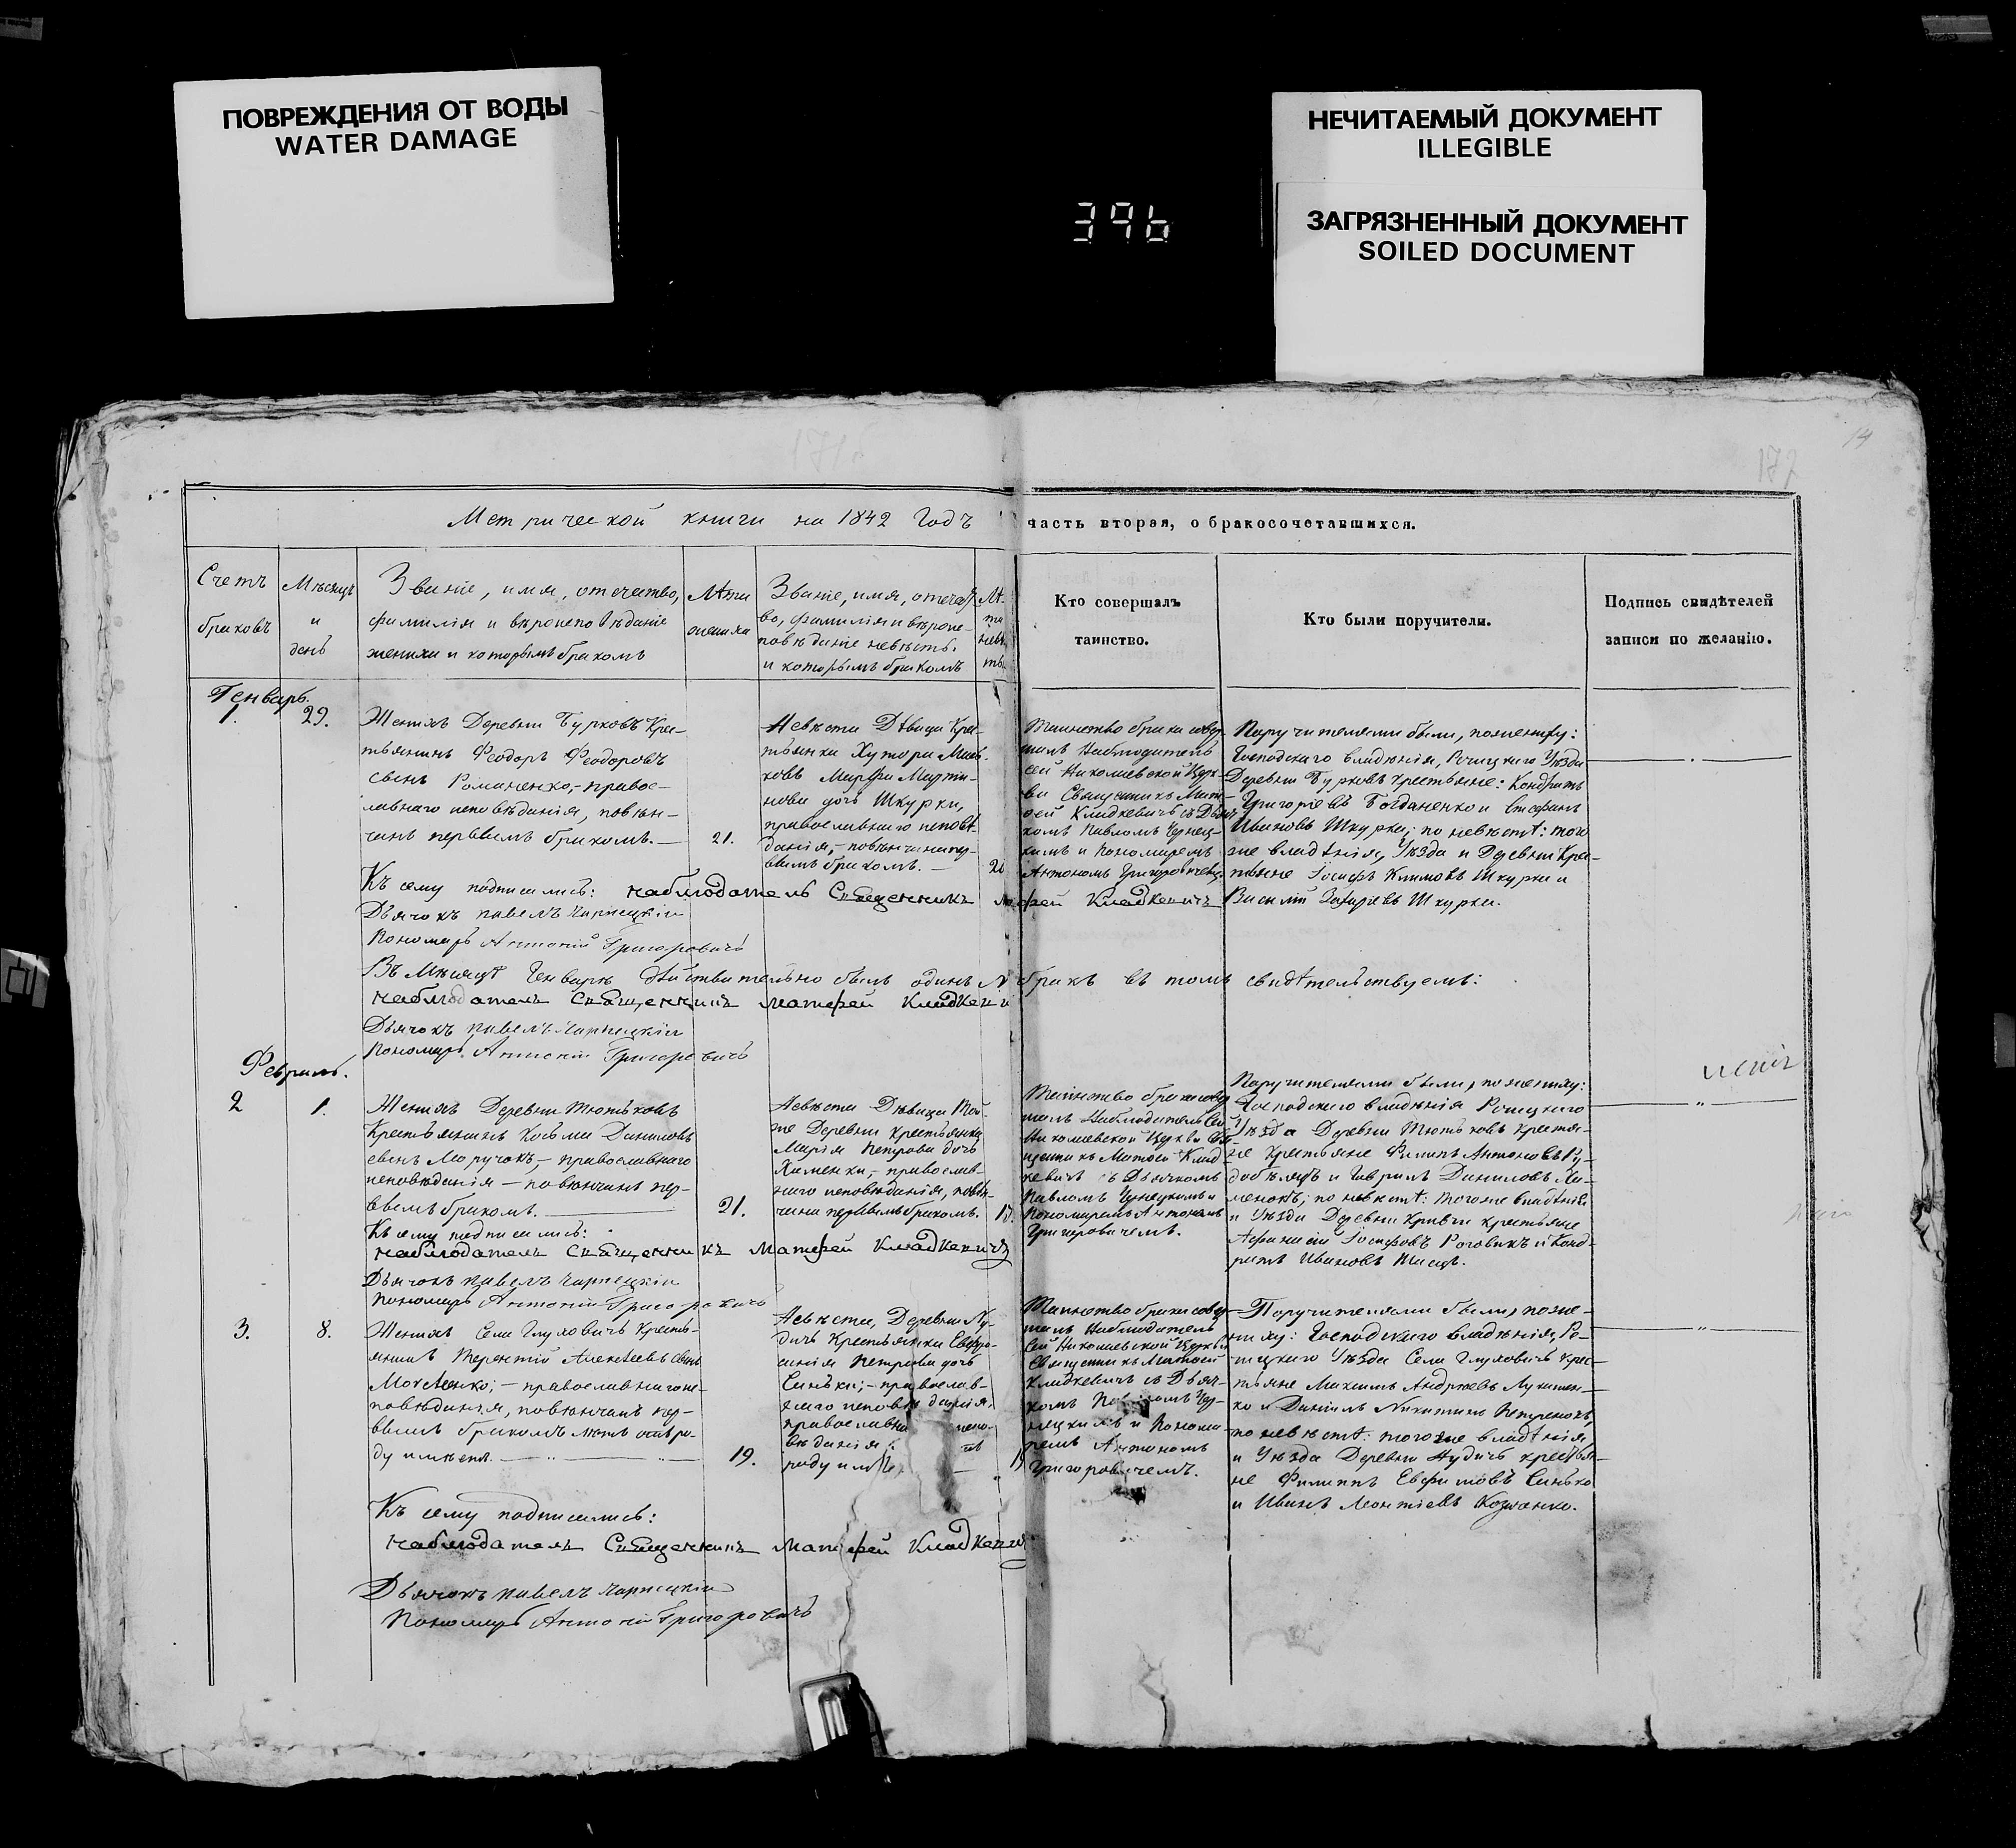 ПОВРЕЖДЕНИЯ ОТ ВОДЫ
WATER DAMAGE
НЕЧИТАЕМЫЙ ДОКУМЕНТ
ILLEGIBLE
ЗАГРЯЗНЕННЫЙ ДОКУМЕНТ
SOILED DOCUMENT
396
14
Метрической книги на 1842 Годъ часть вторая, о бракосочетавшихся.
Счетъ
браковъ
Мѣсяцъ
и
день
Званіе, имя, отечество,
фамилія и вѣроисповѣданіе
жениха и которымъ бракомъ
Лѣта
жениха
Званіе, имя, отечест
во, фамилія и вѣроис-
повѣданіе невѣсты.
и которымъ бракомъ
Лѣ-
та
невѣ
ты
Кто совершалъ
таинство.
Кто были поручители.
Подпись свидѣтелей
записи по желанію.
Генварь.
1. 29.
Женихъ Деревни Бурковъ Крес-
тьянинъ Ѳеодоръ Ѳеодоровъ
сынъ Романенко,- правос-
лавнаго исповѣданія, повѣн-
чанъ первымъ бракомъ. —
21.
Невѣста Дѣвица Крес-
тьянка Хутора
Марфа Марти-
нова дочь Шкурки,
православнаго исповѣ-
данія,- повѣнчана пер-
вымъ бракомъ. —
20
Таинство брака совер-
шалъ Наблюдатель
сей Николаевской Церк-
ви Священникъ Мат-
ѳей Кладкевичъ съ Дьяч-
комъ Павломъ Чернец-
кимъ и Пономаремъ
Антономъ Григоровичемъ.
Поручителями были, по жениху:
Господскаго владѣнія, Рѣчицкаго Уѣзда
Деревни Бурковъ крестьяне: Кондратъ
Григорьевъ Богданенко и Стефанъ
Ивановъ Шкурка; по невѣстѣ: того
же владѣнія, Уѣзда и Деревни Крес-
тьяне Іосифъ Климовъ Шкурка и
Василій Захарьевъ Шкурка.
Къ сему подписались: наблюдатель Священникъ Матфей Кладкевичъ
Дьячокъ Павелъ Чарнецкій
Пономарь Антоній Григоровичъ
Въ Мѣсяцѣ Генварѣ дѣйствительно былъ одинъ бракъ въ томъ свидѣтельствуемъ:
наблюдатель Священникъ Матфей Кладкеви
Дьячокъ Павелъ Чарнецкій
Пономарь Антоній Григоровичъ
Февраль.
2 1.
Женихъ Деревни Тютьковъ
Крестьянинъ Косьма Даниловъ
сынъ Моручокъ,- православнаго
исповѣданія — повѣнчанъ пер-
вымъ бракомъ.
21.
Невѣста Дѣвица Той-
же Деревни крестьянка
Марія Петрова дочь
Хименки,- православ-
наго исповѣданія, повѣн-
чана первымъ бракомъ.
Таинство брака совер
шалъ Наблюдатель сей
Николаевской Церкви Свя-
щенникъ Матѳей Клад-
кевичъ съ Дьячкомъ
Павломъ Чернецкимъ и
Пономаремъ Антономъ
Григоровичемъ.
Поручителями были, по жениху:
Господскаго владѣнія Рѣчицкаго
Уѣзда Деревни Тютьковъ крестья-
не крестьяне Филипъ Антоновъ Ру-
добѣлецъ и Гаврилъ Даниловъ Хи-
менокъ; по невѣстѣ: того же владѣнія
и Уѣзда Деревни Кривчи крестьяне
Афанасій Іосифовъ Роговикъ и Конд-
ратъ Ивановъ
Къ сему подписались:
наблюдатель Священникъ Матфей Кладкевичъ
Дьячокъ Павелъ Чарнецкій
Пономарь Антоній Григоровичъ
3. 8.
Женихъ Села Глуховичъ Кресть-
янинъ Терентій Алексѣевъ сынъ
Мохленко;- православнаго ис-
повѣданія, повѣнчанъ пер-
вымъ бракомъ лѣтъ отъ ро-
ду имѣетъ.
19.
Невѣста, Деревни Ну-
дичъ Крестьянка Евфро-
синія Петрова дочь
Синьки;- православ-
наго исповѣданія,
православна испо-
вѣданія
роду имѣе
Таинство брака совер-
шалъ Наблюдатель
сей Николаевской Церкви
Священникъ Матѳей
Кладкевичъ съ Дьяч-
комъ Павломъ Чер-
нецкимъ и Понома-
ремъ Антономъ
Григоровичемъ.
Поручителями были, по же-
ниху: Господскаго владѣнія, Рѣ-
чицкаго Уѣзда Села Глуховичъ крес-
тьяне Максимъ Андреевъ Лукашен-
ко и Даніилъ Никитинъ Петренокъ,
по невѣстѣ: того же владѣнія
и Уѣзда Деревни Нудичъ крестья-
не Филиппъ Евфимовъ Синько
и Иванъ Леонтіевъ Козленко.
Къ сему подписались:
наблюдатель Священникъ Матфей Кладкевичъ
Дьячокъ Павелъ Чарнецкій
Пономарь Антоній Григоровичъ